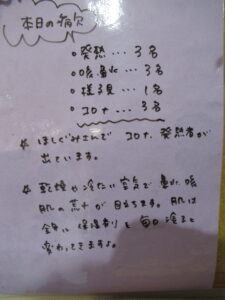 本日の病欠
・発熱…3名
・咳鼻水…3名
・様子見…1名
・コロナ…3名
☆ ほしぐみさんで コロナ、発熱者が
出ています。
☆ 乾燥や冷たい空気で 鼻水、咳
肌の荒れが 目立ちます。肌は
全身に 保湿剤を 毎日塗ると
変わってきますよ。